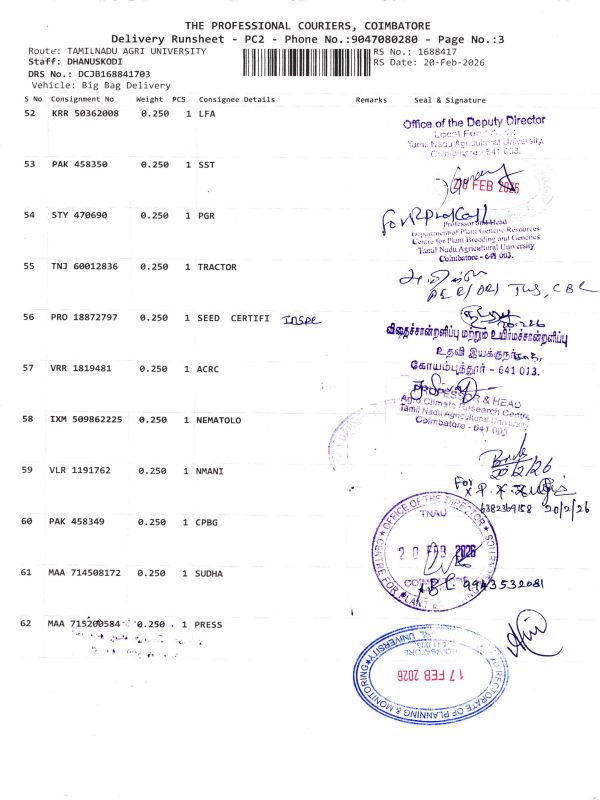 THE PROFESSIONAL COURIERS, COIMBATORE
Delivery Runsheet - PC2 - Phone No.:9047080280 - Page No.:3
Route: TAMILNADU AGRI UNIVERSITY
RS No.: 1688417
Staff: DHANUSKODI
RS Date: 20-Feb-2026
DRS No.: DCJB168841703
Vehicle: Big Bag Delivery
S No Consignment No Weight PCS Consignee Details Remarks Seal & Signature
52 KRR 50362008 0.250 1 LFA
Office of the Deputy Director
Local Fund Audit
Tamil Nadu Agricultural University,
Coimbatore - 641 003.
53 PAK 458350 0.250 1 SST
20 FEB 2026
54 STY 470690 0.250 1 PGR
Professor and Head
Department of Plant Genetic Resources
Centre for Plant Breeding and Genetics
Tamil Nadu Agricultural University
Coimbatore - 641 003.
55 TNJ 60012836 0.250 1 TRACTOR
56 PRO 18872797 0.250 1 SEED CERTIFI Inspe
விதைச்சான்றளிப்பு மற்றும் உயிர்மச்சான்றளிப்பு
உதவி இயக்குநர்
கோயம்புத்தூர் - 641 013.
57 VRR 1819481 0.250 1 ACRC
PROFESSOR & HEAD
Agro Climate Research Centre
Tamil Nadu Agricultural University
Coimbatore - 641 003
58 IXM 509862225 0.250 1 NEMATOLO
20/2/26
59 VLR 1191762 0.250 1 NMANI
For
6382369158 20/2/26
60 PAK 458349 0.250 1 CPBG
OFFICE OF THE DIRECTOR
TNAU
20 FEB 2026
CENTRE FOR PLANT
61 MAA 714508172 0.250 1 SUDHA
9943532081
62 MAA 715200584 0.250 1 PRESS
DIRECTORATE OF PLANNING & MONITORING
17 FEB 2026
COIMBATORE
641 003.